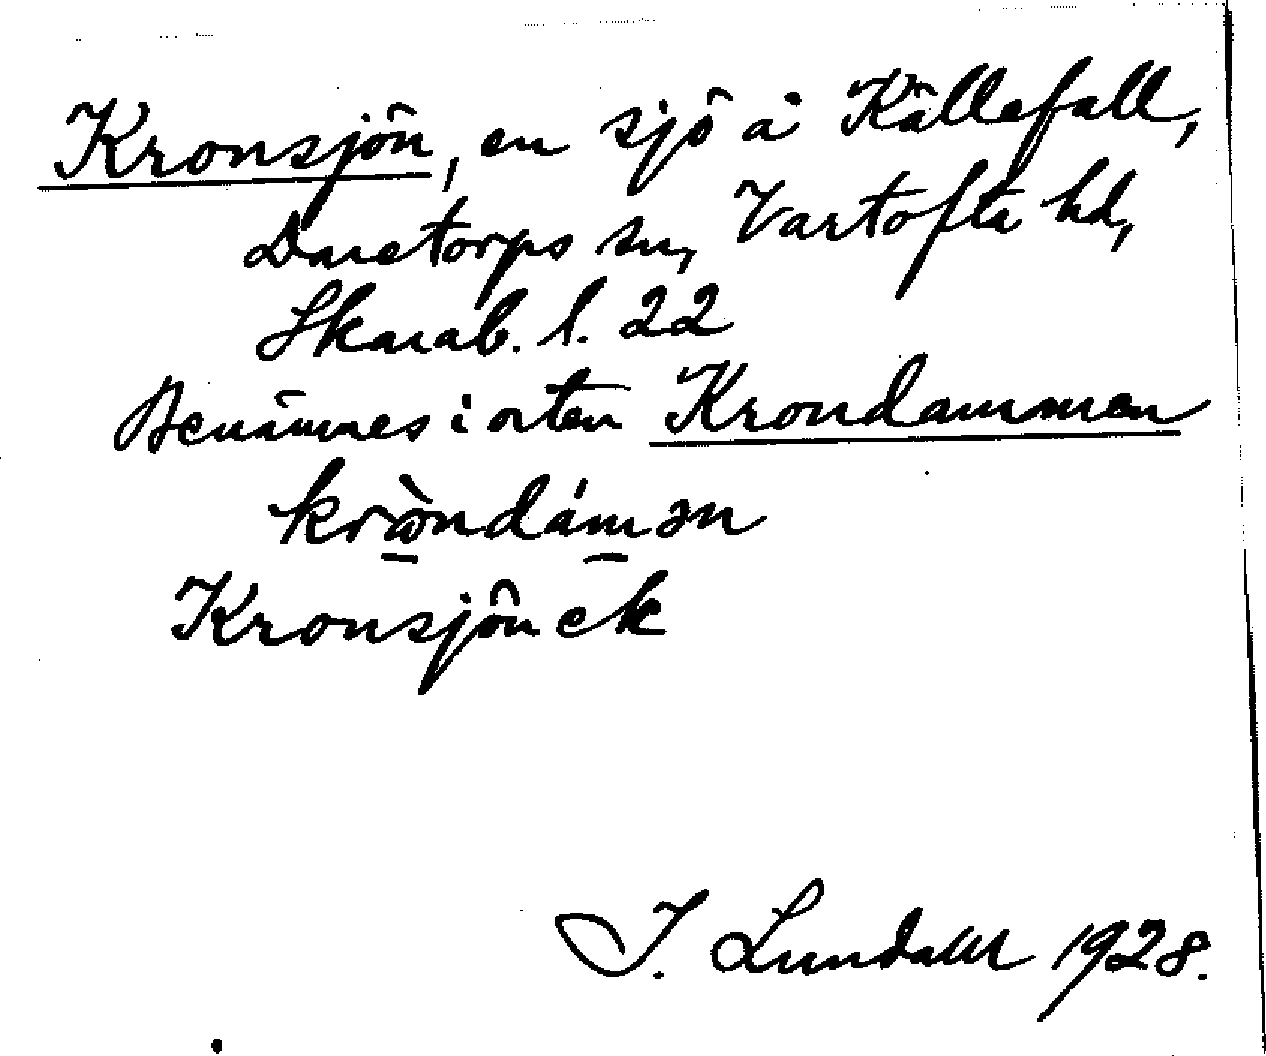 Kronsjön, en sjö å Källefall,
Daretorps sn, Vartofta hd,
Skarab. l. 22
Benämnes i orten Krondammen
krὼndámən
Kronsjön ek
I. Lundahl 1928.